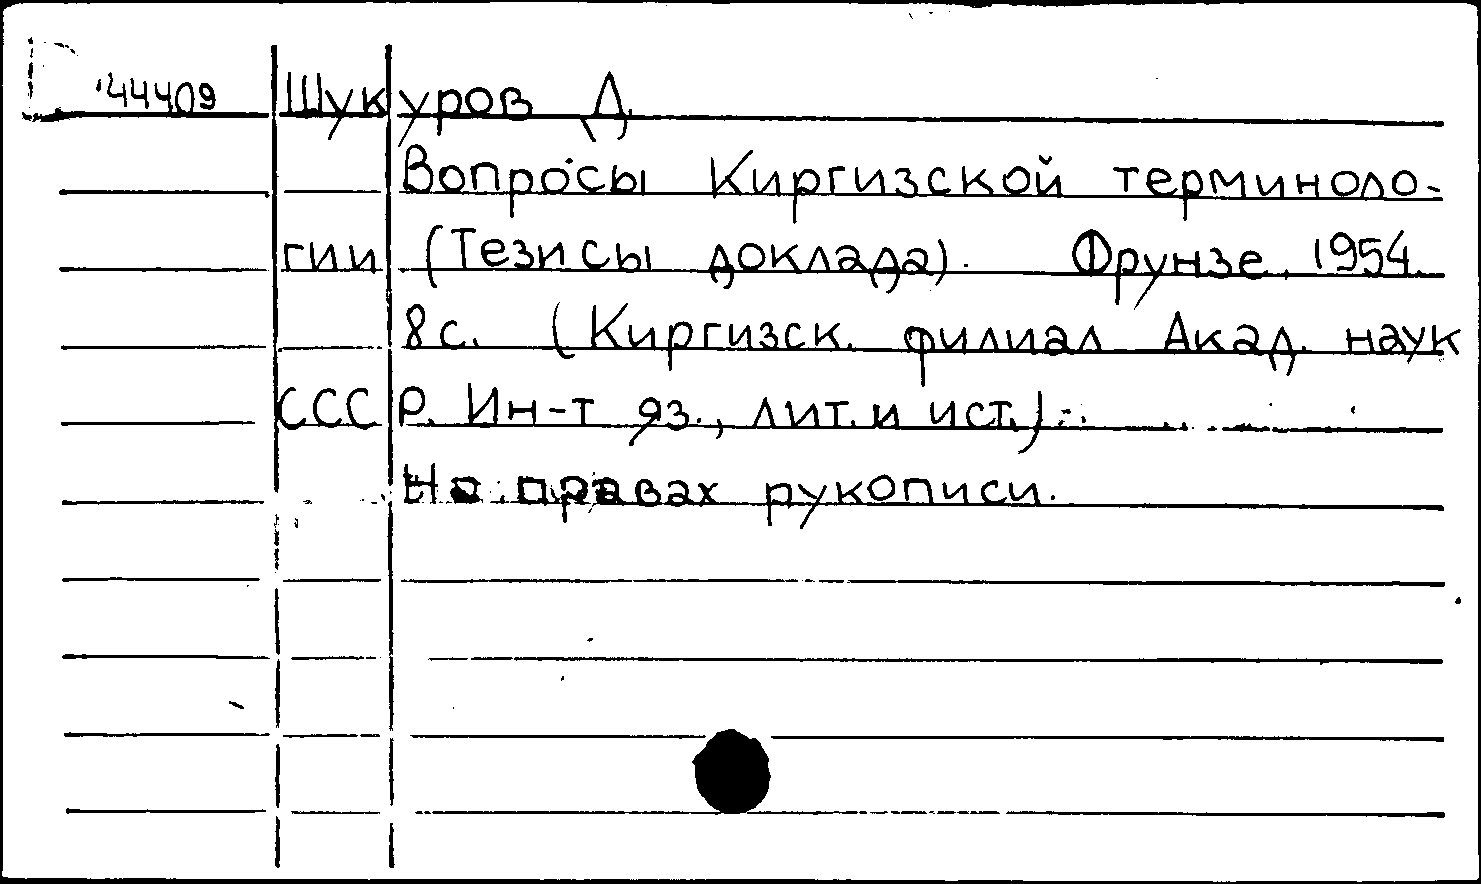 44409 Шукуров Д.
Вопросы Киргизской терминоло-
гии (Тезисы доклада). Фрунзе, 1954.
8с. (Киргизск. филиал Акад. наук
СССР. Ин-т яз., лит. и ист.).
На правах рукописи.